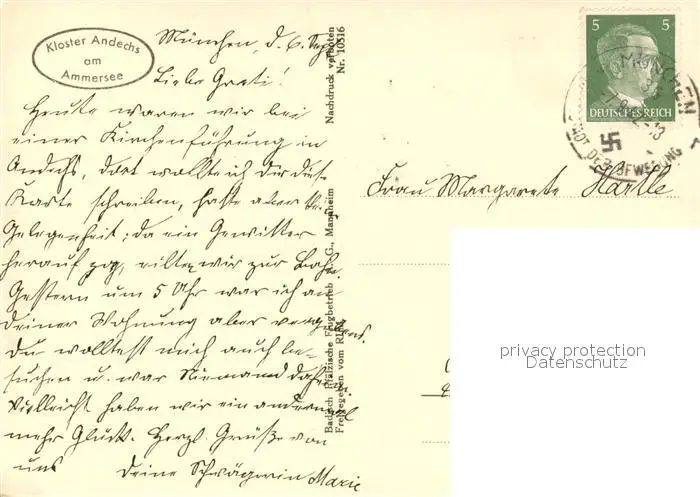 Kloster Andechs
am
Ammersee
München, d. 6. Sept.
Liebe Greti!
Heute waren wir bei
einer Kirchenführung in
Andechs, dort wollte ich dir diese
Karte schreiben, hatte aber keine
Gelegenheit; da ein Gewitter
herauf zog, eilten wir zur Bahn.
Gestern um 5 Uhr war ich an
deiner Wohnung aber vergebens.
Du wolltest mich auch be-
suchen u. war Niemand daheim
Vielleicht haben wir ein andermal
mehr Glück. Herzl. Grüße von
uns Deine Schwägerin Marie
Nachdruck verboten
Nr. 10516
Badisch Pfälzische Flugbetrieb A. G., Mannheim
Freigegeben vom RLM
5 5
DEUTSCHES REICH
MÜNCHEN
STADT DER BEWEGUNG
Frau Margarete Härtle
privacy protection
Datenschutz